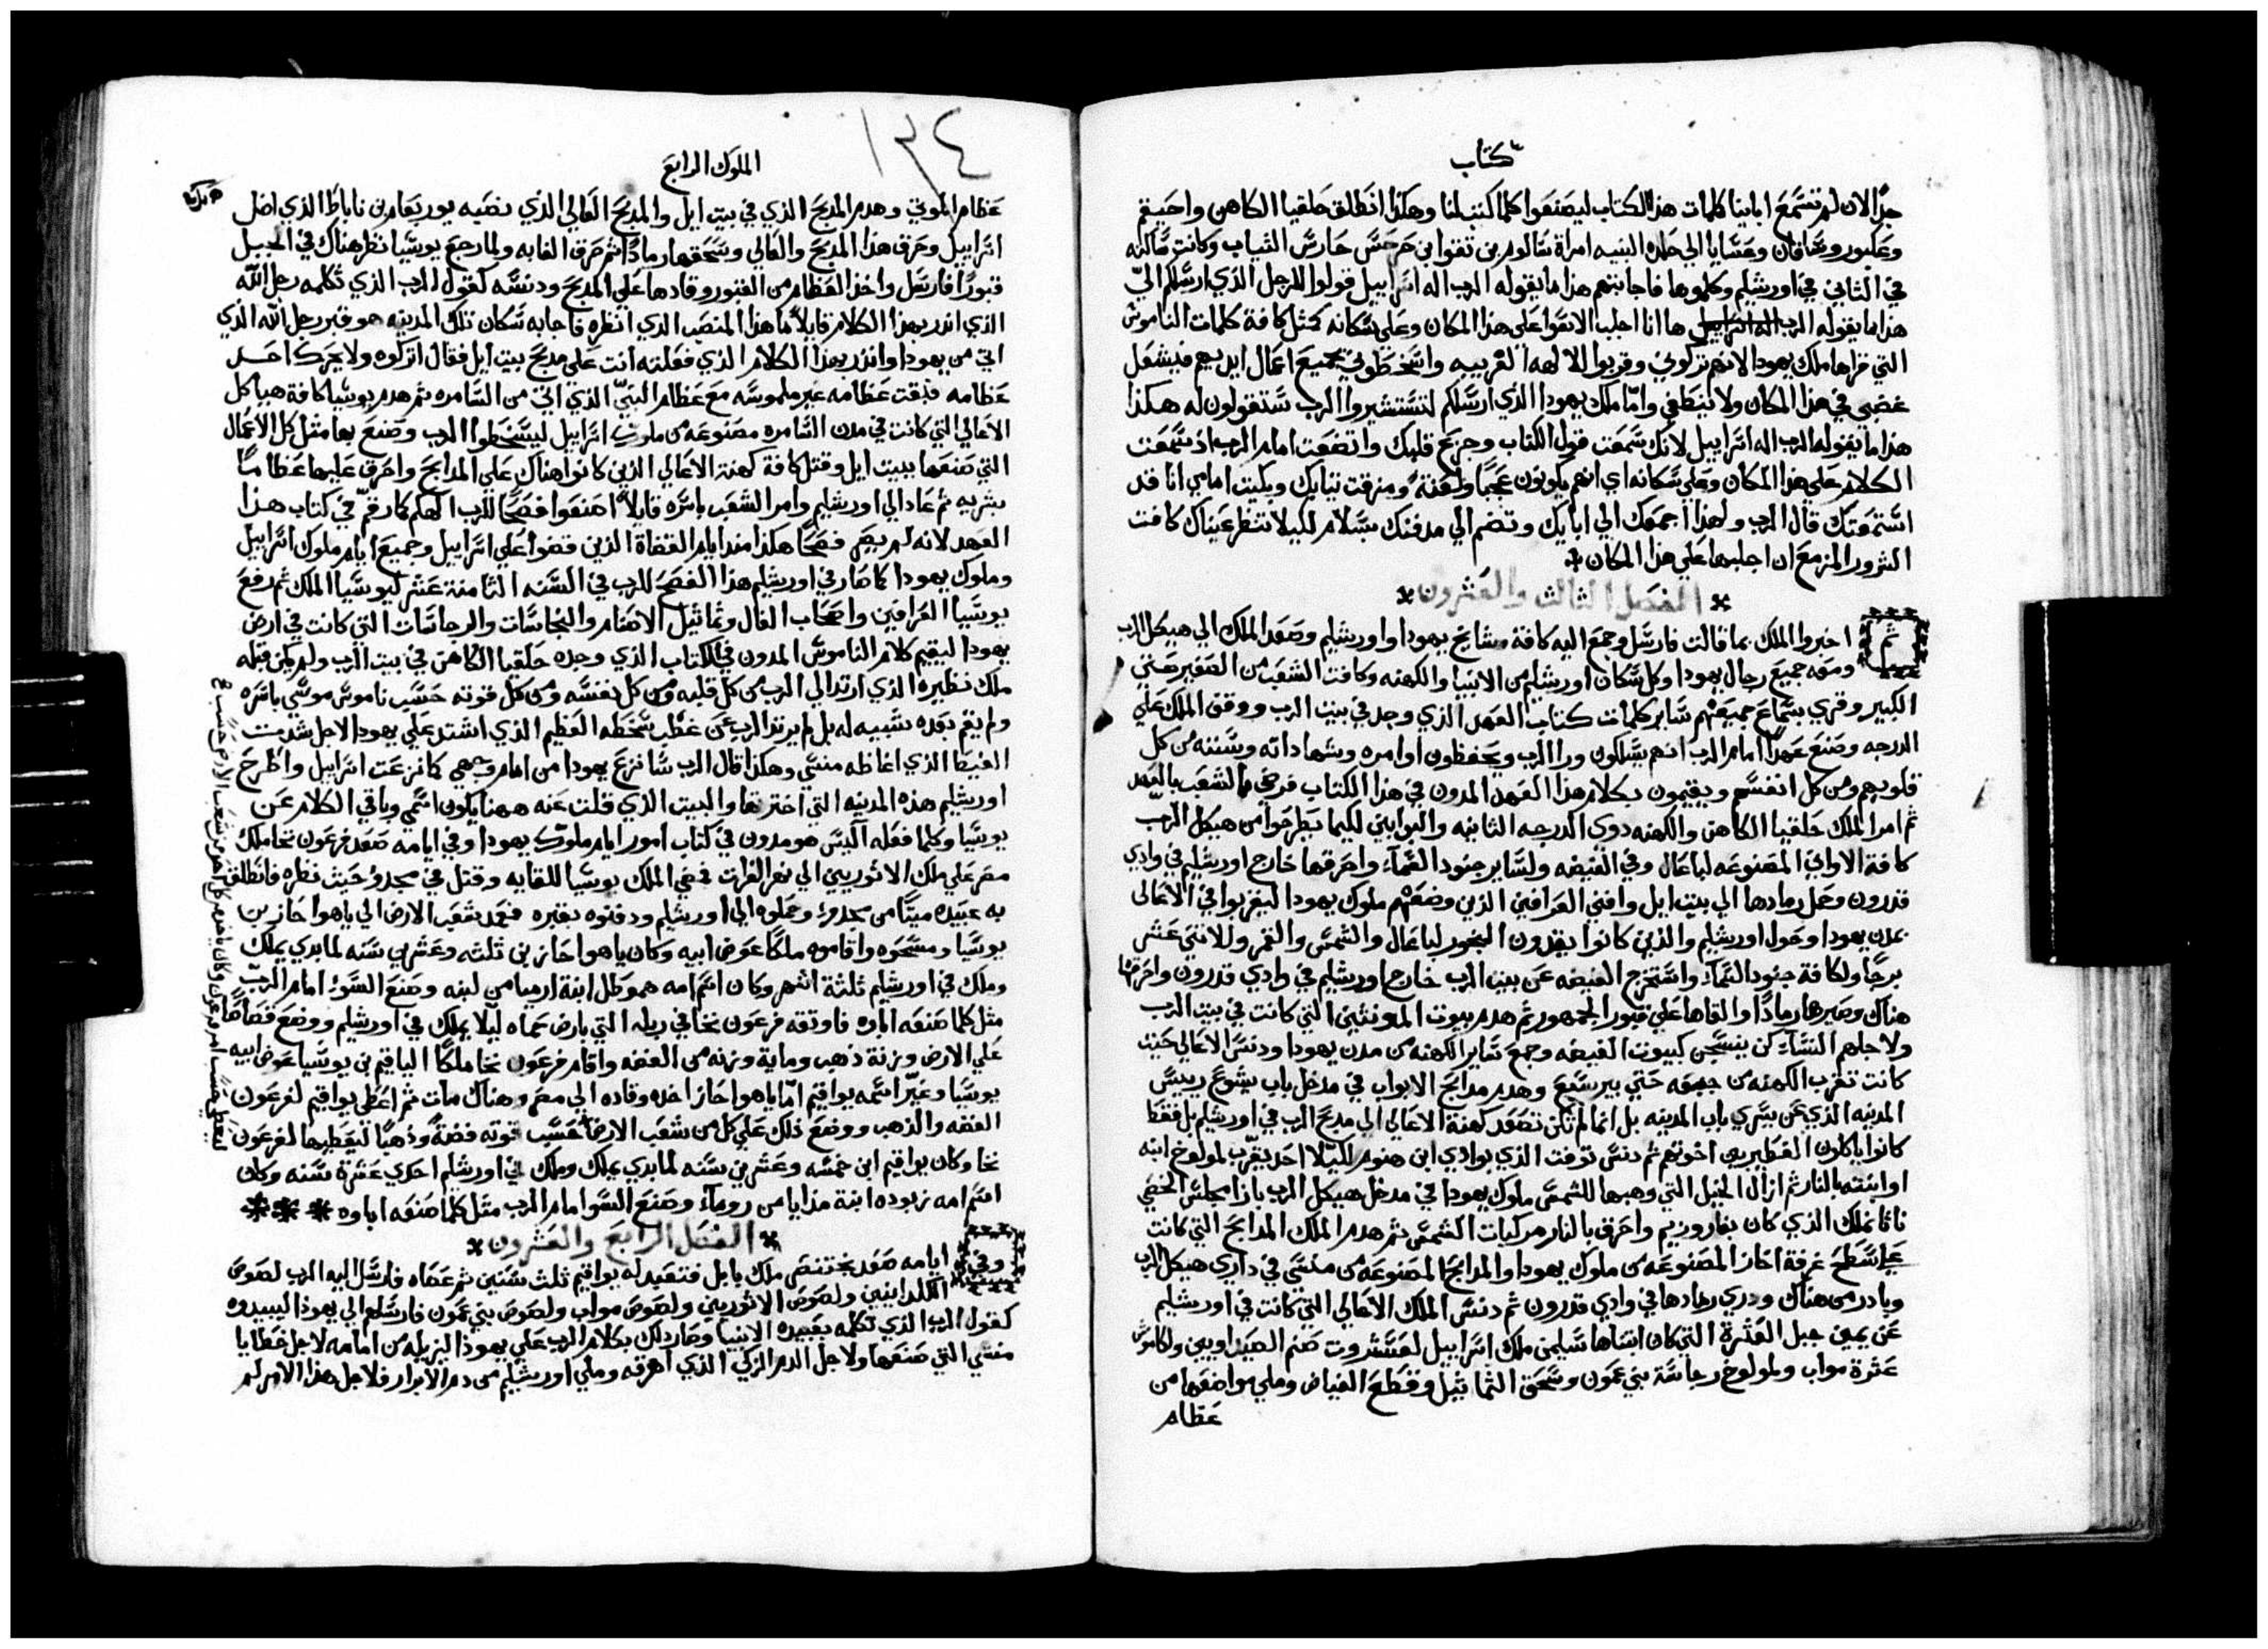 كتاب
جدًا لان لم تسمع ابايـنا كلمات هذا الكتاب ليصنعوا كلما كتب لنا وهكذا انطلق حلقيا الكاهن واحيقم
وعكبور وشافان وعسايا الي حلده النبيه امراة شالوم بن تقوا بن حرحس حارس الثياب وكانت ساكنه
في الثاني في اورشليم وكلموها فاجابتهم هذا ما يقوله الرب اله اسراييل قولوا للرجل الذي ارسلكم اليّ
هذا ما يقوله الرب ها انا اجلب الاسوا علي هذا المكان وعلي سكانه كمثل كافة كلمات الناموس
التي قراها ملك يهودا لانهم تركوني وقربوا للالهه الغريبه واسخطوني بجميع اعمال ايديهم فيشعل
غضبي في هذا المكان ولا ينطفي وامّا ملك يهودا الذي ارسلكم لتستشيروا الرب ستقولون له هكذا
هذا ما يقوله الرب اله اسراييل لانك سمعت قول الكتاب وجزع قلبك واتضعت امام الرب اذ سمعت
الكلام علي هذا المكان وعلي سكانه اي انهم يكونون عجبًا ولعنة ومزقت ثيابك وبكيت امامي انا قد
استمعتك قال الرب ولهذا اجمعك الي ابايك وتضم الي مدفنك بسلام لكيلا تنظر عيناك كافت
الشرور المزمع ان اجلبها علي هذا المكان
الفصل الثالث والعشرون
ثم اخبروا الملك بما قالت فارسل وجمع اليه كافة مشايخ يهودا واورشليم وصعد الملك الي هيكل الرب
ومعه جميع رجال يهودا وكل سكان اورشليم من الانبيا والكهنه وكافت الشعب من الصغير حتي
الكبير وقري بسماع جميعهم ساير كلمات كتاب العهد الذي وجد في بيت الرب ووقف الملك علي
الدرجه وصنع عهدًا امام الرب انهم يسلكون ورا الرب ويحفظون اوامره وشهاداته وسننه من كل
قلوبهم ومن كل انفسهم ويقيمون بكلام هذا العهد المدون في هذا الكتاب فرضي الشعب بالعهد
ثم امر الملك حلقيا الكاهن والكهنه ذوي الدرجه الثانيه والبوابين لكيما يطرحوا من هيكل الرب
كافة الاواني المصنوعه لباعال وفي الغيضه ولساير جنود السماء واحرقها خارج اورشليم في وادي
قدرون وحمل رمادها الي بيت ايل وافني العرافين الذين وضعهم ملوك يهودا ليقربوا في الاعالي
بمدن يهودا وحول اورشليم والذين كانوا يقدون البخور لباعال والشمس والقمر وللاثني عشر
برجًا ولكافة جنود السماء واستخرج الغيضه عن بيت الرب خارج اورشليم في وادي قدرون واحرقها
هناك وصيرها رمادًا والقاها علي قبور الجمهور ثم هدم بيوت المونثين التي كانت في بيت الرب
ولاجلهم النساء كن ينسجن كبيوت الغيضه وجمع ساير الكهنه من مدن يهودا ودنس الاعالي حيث
كانت تقرب الكهنه من جبعه حتي بير سبع وهدم مدابح الابواب في مدخل باب يشوع رييس
المدينه الذي عن يسري باب المدينه بل انما لم تكن تصعد كهنة الاعالي الي مدبح الرب في اورشليم بل فقط
كانوا ياكلون الفطير بين اخوتهم ثم دنس توفت الذي بوادي ابن هنوم لكيلا احد يقرب لمولوخ ابنه
او ابنته بالنار ثم ازال الخيل التي وهبها للشمس ملوك يهودا في مدخل هيكل الرب بازا مجلس الخصي
ناثانملك الذي كان بفاروريم واحرق بالنار مركبات الشمس ثم هدم الملك المدابح التي كانت
علي سطح غرفة احاز المصنوعه من ملوك يهودا والمدابح المصنوعه من منسي في داري هيكل الرب
وبادر من هناك ودري رمادها في وادي قدرون ثم دنس الملك الاعالي التي كانت في اورشليم
عن يمين جبل العثرة التي كان انشاها سليمن ملك اسراييل لعستروت صنم الصيداويين ولكاموش
عثرة مواب ولمولوخ رجاسة بني عمون وسحق التماثيل وقطع الغياض وملي مواضعها من
عظام
١٣٤
الملوك الرابع
عظام الموتي وهدم المدبح الذي في بيت ايل والمدبح العالي الذي نصبه يوربعام بن ناباط الذي اضل
اسراييل وحرق هذا المدبح والعالي وسحقها رمادًا ثم حرق الغابه ولما رجع يوسيا نظر هناك في الجبل
قبورًا فارسل واخذ العظام من القبور وقادها علي المدبح ودنسه كقول الرب الذي تكلمه رجل الله
الذي انذر بهذا الكلام قايلاً ما هذا المنصب الذي انظره فاجابه سكان تلك المدينه هو قبر رجل الله الذي
اتي من يهودا وانذر بهذا الكلام الذي فعلته انت علي مدبح بيت ايل فقال اتركوه ولا يحرك احد
عظامه فبقت عظامه غير ملموسه مع عظام النبي الذي اتي من السامره ثم هدم يوسيا كافة هياكل
الاعالي التي كانت في مدن السامره مصنوعه من ملوك اسراييل ليسخطوا الرب وصنع بها مثل كل الاعمال
التي صنعها ببيت ايل وقتل كافة كهنة الاعالي الذين كانوا هناك علي المدابح واحرق عليها عظامًا
بشريه ثم عاد الي اورشليم وامر الشعب باسره قايلاً اصنعوا فصحًا للرب الهكم كما رقم في كتاب هذا
العهد لانه لم يصر فصحًا هكذا منذ ايام القضاة الذين قضوا علي اسراييل وجميع ايام ملوك اسراييل
وملوك يهودا كما صار في اورشليم هذا الفصح للرب في السنه الثامنة عشر ليوسيا الملك ثم رفع
يوسيا العرافين واصحاب الفال وتماثيل الاصنام والنجاسات والرجاسات التي كانت في ارض
يهودا ليقيم كلام الناموس المدون في الكتاب الذي وجده حلقيا الكاهن في بيت الرب ولم يكن قبله
ملك نظيره الذي ارتد الي الرب من كل قلبه ومن كل نفسه ومن كل قوته حسب ناموس موسي باسره
ولم يقم بعده شبيه له بل لم يرتد الرب عن غضب سخطه العظيم الذي اشتد علي يهودا لاجل شدت
الغيظ الذي اغاظه منسي وهكذا قال الرب سانزع يهودا من امام وجهي كما نزعت اسراييل واطرح
اورشليم هذه المدينه التي اخترتها والبيت الذي قلت عنه ههنا يكون اسمي وباقي الكلام عن
يوسيا وكلما فعله اليس هو مدون في كتاب امور ايام ملوك يهودا وفي ايامه صعد فرعون نخا ملك
مصر علي ملك الاثوريين الي نهر الفرات فمضي الملك يوسيا للقايه وقتل في مجدو حيث نظره فانطلق
به عبيده ميتًا من مجدو وحملوه الي اورشليم ودفنوه بقبره فعمد شعب الارض الي ياهواحاز بن
يوسيا ومسحوه واقاموه ملكًا عوض ابيه وكان ياهواحاز بن ثلثه وعشرين سنه لما بدي يملك
وملك في اورشليم ثلثة اشهر وكان اسم امه حموطل ابنة ارميا من لبنه وصنع السوء امام الرب
مثل كلما صنعه اباوه فاوثقه فرعون نخا في ربله التي بارض حماه ليلا يملك في اورشليم ووضع قصاصًا
علي الارض وزنة ذهب وماية وزنه من الفضه واقام فرعون نخا ملكًا الياقيم بن يوسيا عوض ابيه
يوسيا وغيّر اسمه يواقيم امّا ياهواحاز اخده وقاده الي مصر وهناك مات ثم اعطي يواقيم لفرعون
الفضه والذهب ووضع ذلك علي كل من شعب الارض حسب قوته فضةً وذهبًا ليعطيها لفرعون
نخا وكان يواقيم ابن خمسه وعشرين سنه لما بدي يملك وملك في اورشليم احدي عشرة سنه وكان
اسم امه زبوده ابنة فدايا من روماء وصنع السوا امام الرب مثل كلما صنعه اباوه
الفصل الرابع والعشرون
وفي ايامه صعد بختنصر ملك بابل فتعبد له يواقيم ثلث سنين ثم عصاه فارسل اليه الرب لصوص
الكلدانيين ولصوص الاثوريين ولصوص مواب ولصوص بني عمون فارسلهم الي يهودا ليبيدوه
كقول الرب الذي تكلمه بعبيده الانبيا وصار ذلك بكلام الرب علي يهودا ليزيله من امامه لاجل خطايا
منسي التي صنعها ولاجل الدم الزكي الذي اهرقه وملي اورشليم من دم الابرار فلاجل هذا الامر لم